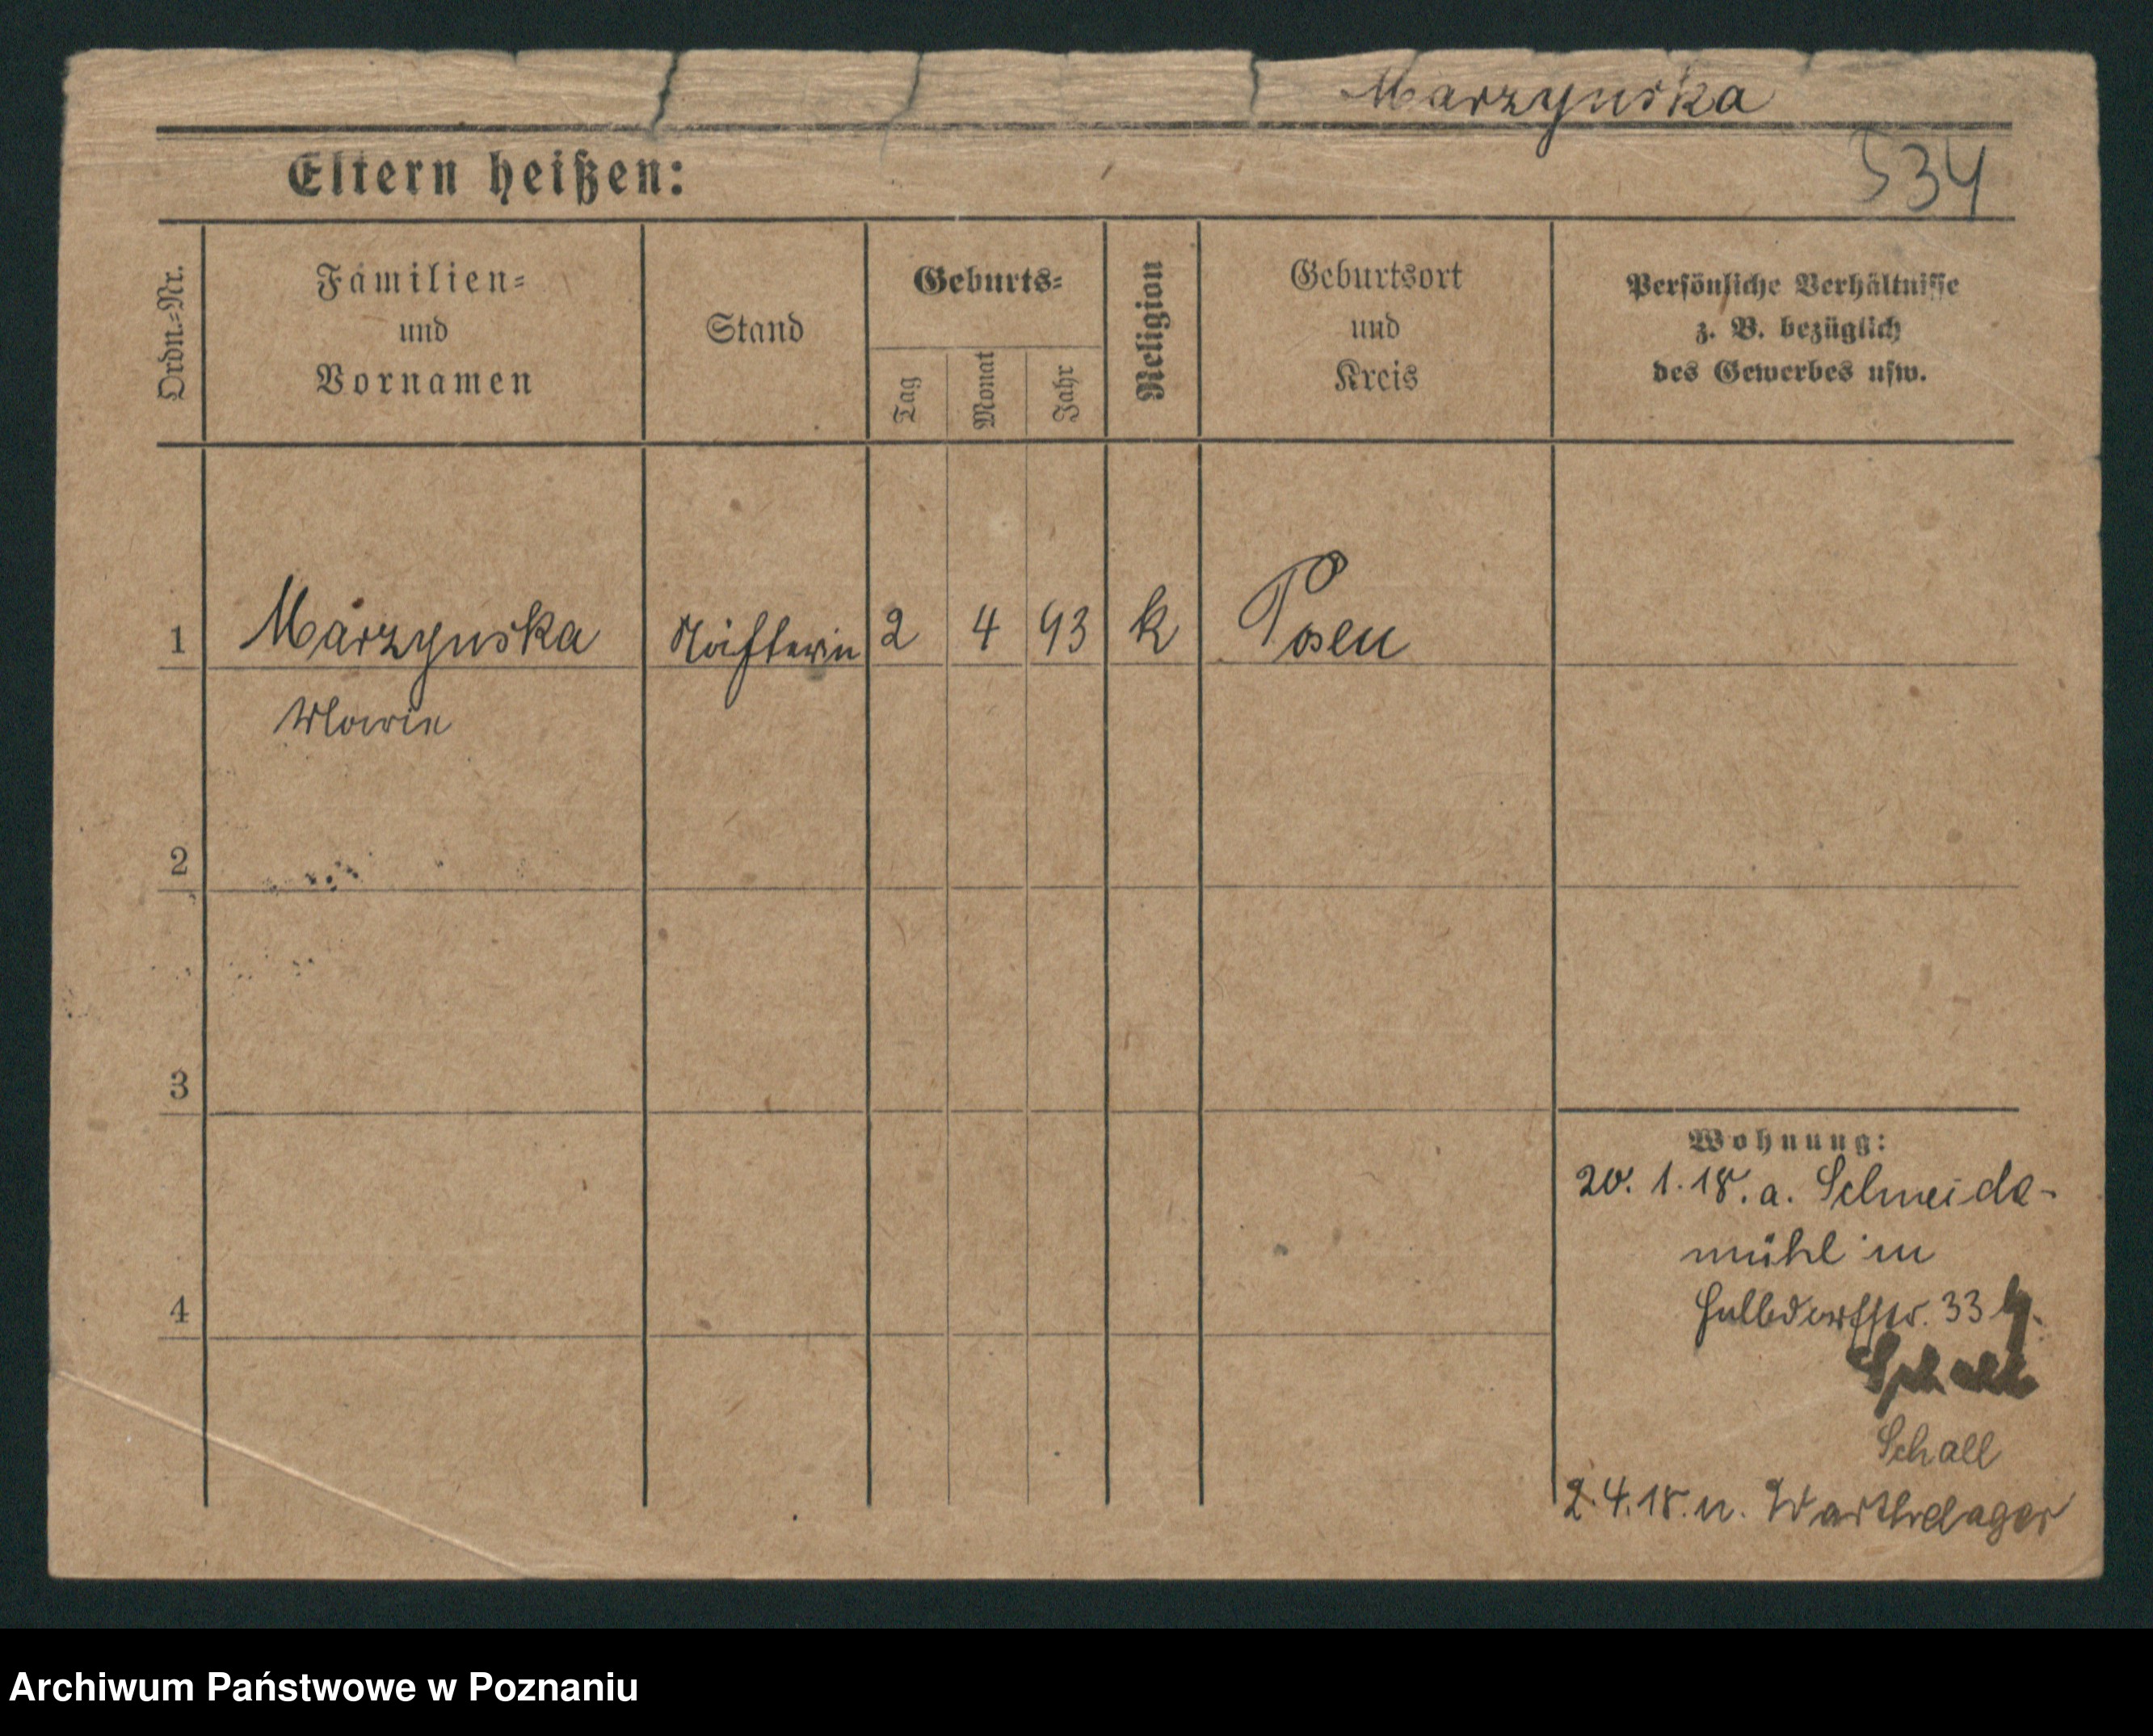 Marzynska
534
Eltern heißen:
Ordn.=Nr.
Familien=
und
Vornamen
Stand
Geburts=
Tag
Monat
Jahr
Religion
Geburtsort
und
Kreis
Persönliche Verhältnisse
z. B. bezüglich
des Gewerbes usw.
1 Marzynska 2 4 93 k Posen
Marie
2
3
4
Wohnung:
20. 1. 18. a. Schneide-
mühl in
33
Schall
2.4.18. n. Warthelager
Archiwum Państwowe w Poznaniu